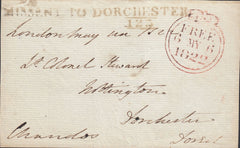 MISSENT TO DORCHESTER
123
FREE
6 MY 6
1822
London May
Lt Colonel Steward
Nottington
Dorchester
Chandos Dorset